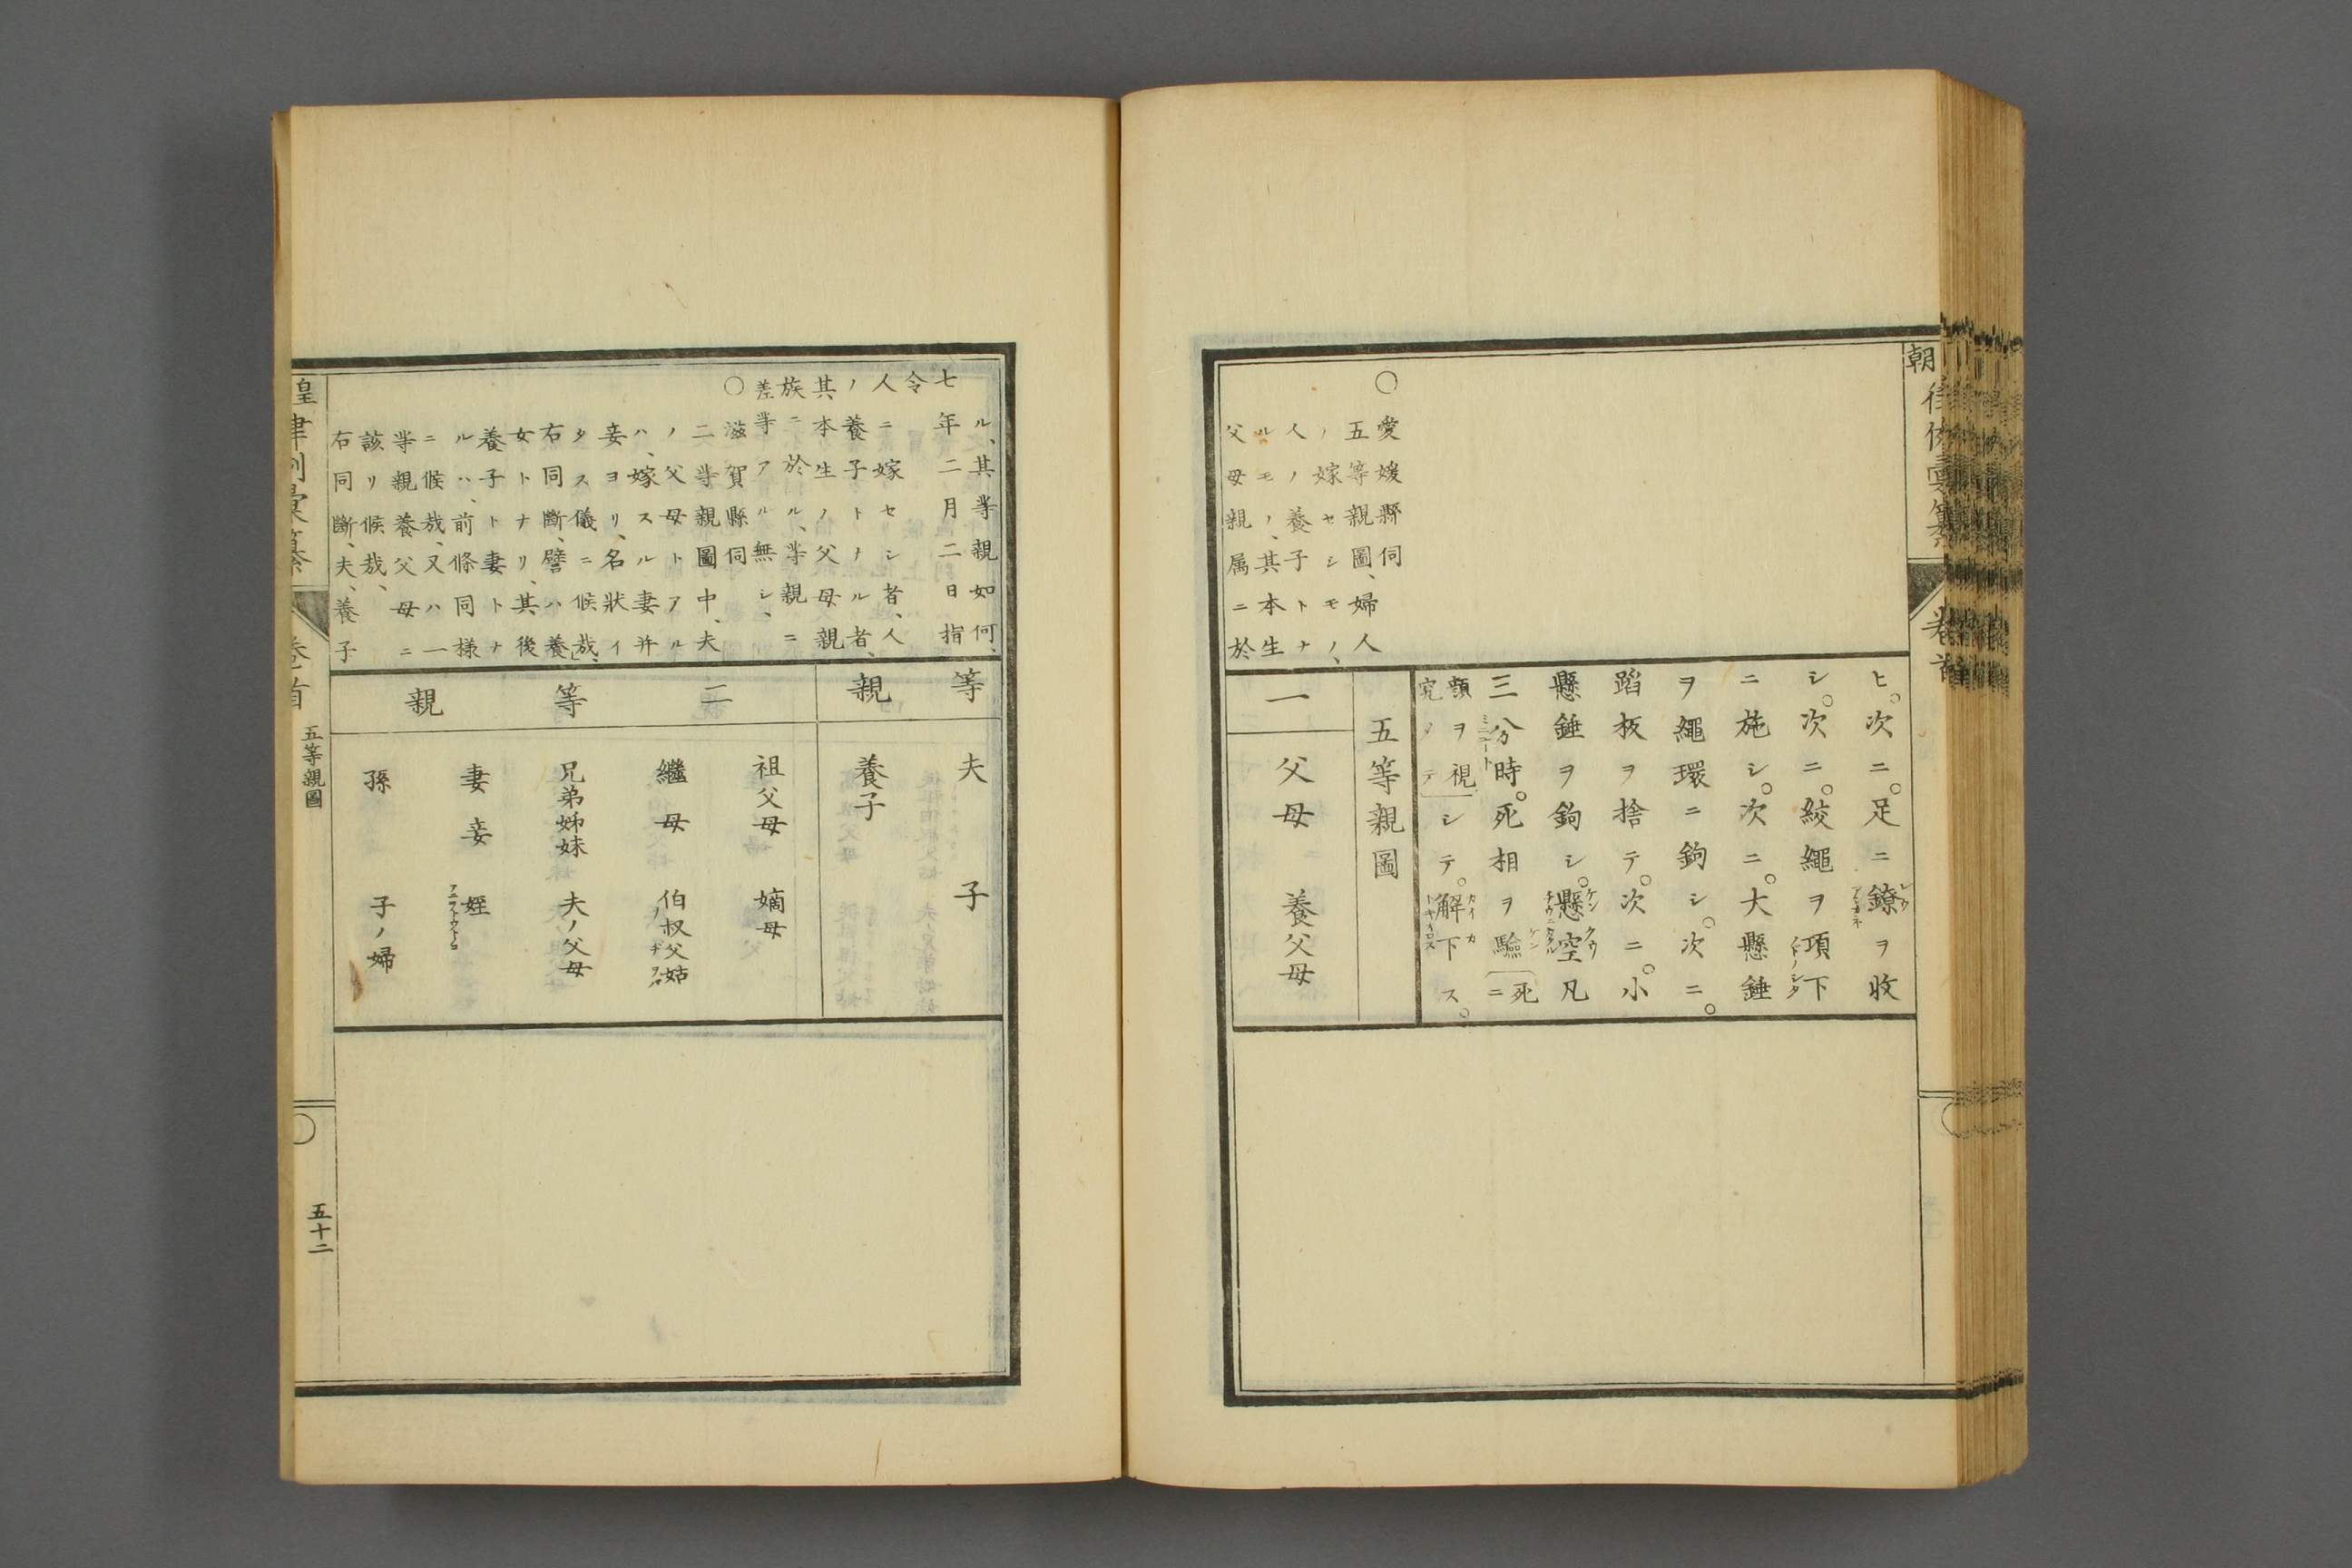 ヒ。次ニ。足ニ鐐ヲ收
シ。次ニ。絞繩ヲ項下
ニ施シ。次ニ。大懸錘
ヲ繩環ニ鉤シ。次ニ。
蹈板ヲ捨テ。次ニ。小
懸錘ヲ鉤シ。懸空凡
三分時。死相ヲ驗〔死ニ
顔ヲ視〕シテ。解下ス。
○愛媛縣伺
五等親圖、婦人
ノ嫁セシモノ、
人ノ養子トナ
ルモノ、其本生
父母親属ニ於
五等親圖
一
父母 養父母
ル、其等親如何、
七年二月二日指
令
人ニ嫁セシ者、人
ノ養子トナル者、
其本生ノ父母親
族ニ於ル、等親ニ
差等アル無シ、
○滋賀縣伺
二等親圖中、夫
ノ父母トアル
ハ、嫁スル妻并
妾ヨリ、名狀イ
タス儀ニ候哉、
右同斷、譬ハ養
女トナリ、其後
養子ト妻トナ
ルハ、前條同様
ニ候哉、又ハ一
等親養父母ニ
該リ候哉、
右同斷、夫、養子
等親
夫 子
養子
二等親
祖父母 嫡母
繼母 伯叔父姑
兄弟姊妹 夫ノ父母
妻妾 姪
孫 子ノ婦
卷首 五等親圖
五十二